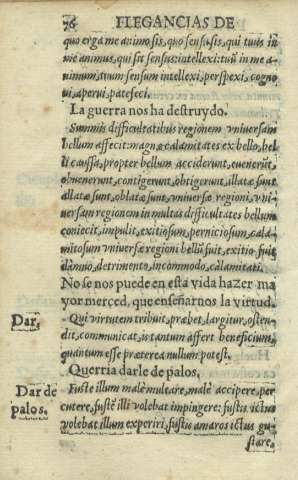 76 ELEGANCIAS DE
quo erga me animo sis, quo sensu sis, qui tuus in
me animus, qui sit sensus: intellexi: tuũ in me a-
nimum, tuum sensum intellexi, perspexi, cogno
vi, aperui, patefeci.
La guerra nos ha destruydo.
Summis difficultatibus regionem vniuersam
bellum affecit: magnæ calamitates ex bello, bel
li caussa, propter bellum acciderunt, euenerũt,
obuenerunt, contigerunt, obtigerunt, illatæ sunt
allatæ sunt, oblatæ sunt, vniuersæ regioni, vni-
uersam regionem in multas difficultates bellum
coniecit, impulit, exitiosum, perniciosum, cala
mitosum vniuersæ regioni bellũ fuit, exitio fuit
damno, detrimento, incommodo, calamitati.
No se nos puede en esta vida hazer ma
yor merced, que enseñarnos la virtud.
Dar. Qui virtutem tribuit, præbet, largitur, osten-
dit, communicat, is tantum affert beneficium,
quantum esse præterea nullum potest.
Querria darle de palos.
Dar de palos. Fuste illum malè multare, malè accipere, per
cutere, fustẽ illi volebat impingere: fustis ictus
volebat illum experiri, fustis amaros ictus gu
stare.